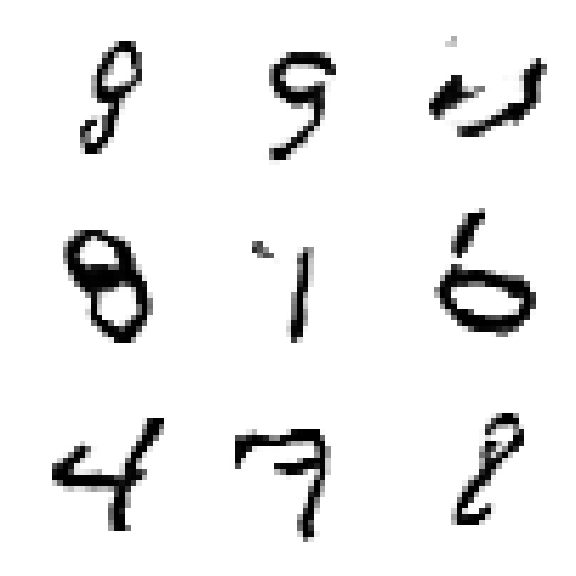 8 9
8 1 6
4 7 8